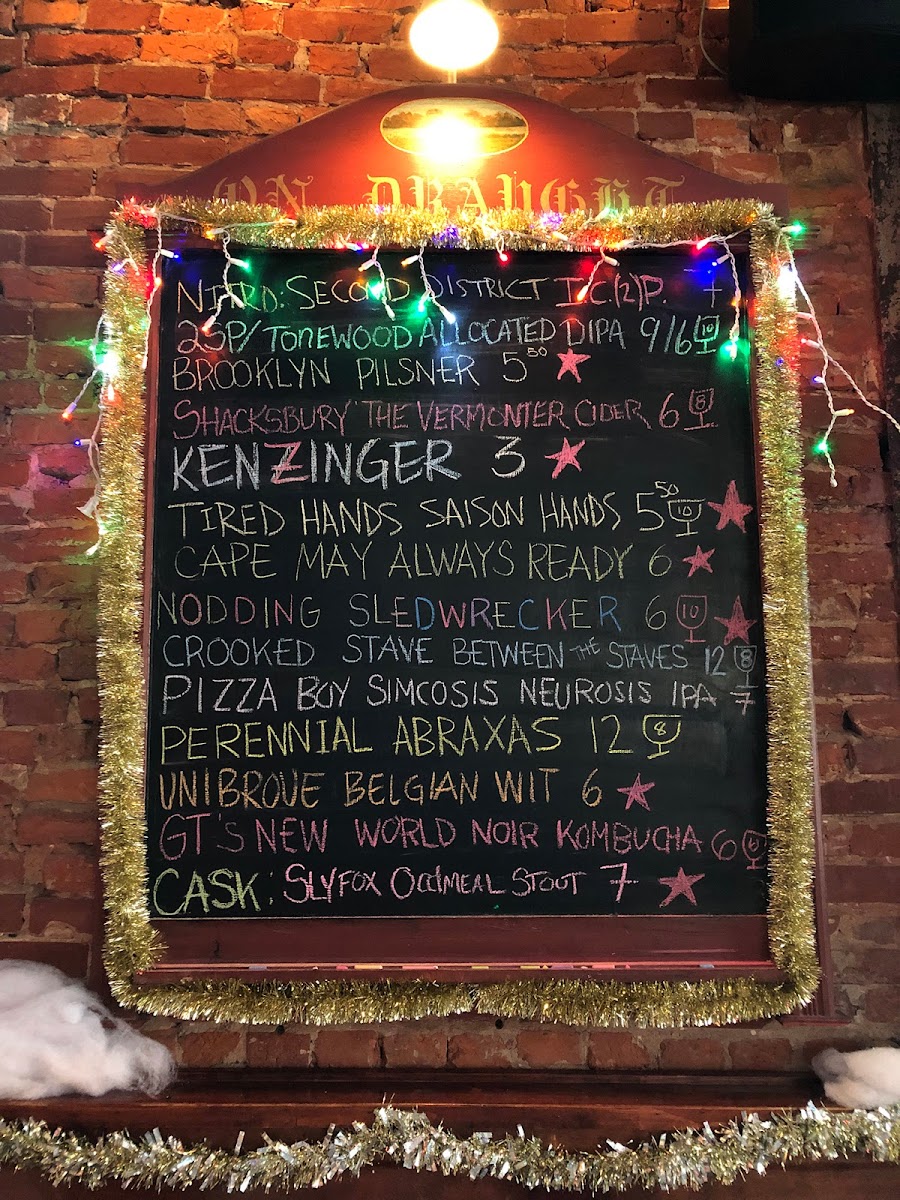 ON DRAUGHT
NITRO: SECOND DISTRICT I.C.(2)P. 7
2SP/TONEWOOD ALLOCATED DIPA 9/6 10
BROOKLYN PILSNER 5 50
SHACKSBURY THE VERMONTER CIDER 6 8
KENZINGER 3
TIRED HANDS SAISON HANDS 5 50 10
CAPE MAY ALWAYS READY 6
NODDING SLEDWRECKER 6 10
CROOKED STAVE BETWEEN THE STAVES 12 8
PIZZA BOY SIMCOSIS NEUROSIS IPA 7
PERENNIAL ABRAXAS 12 8
UNIBROUE BELGIAN WIT 6
GT'S NEW WORLD NOIR KOMBUCHA 6
CASK: SLYFOX OATMEAL STOUT 7